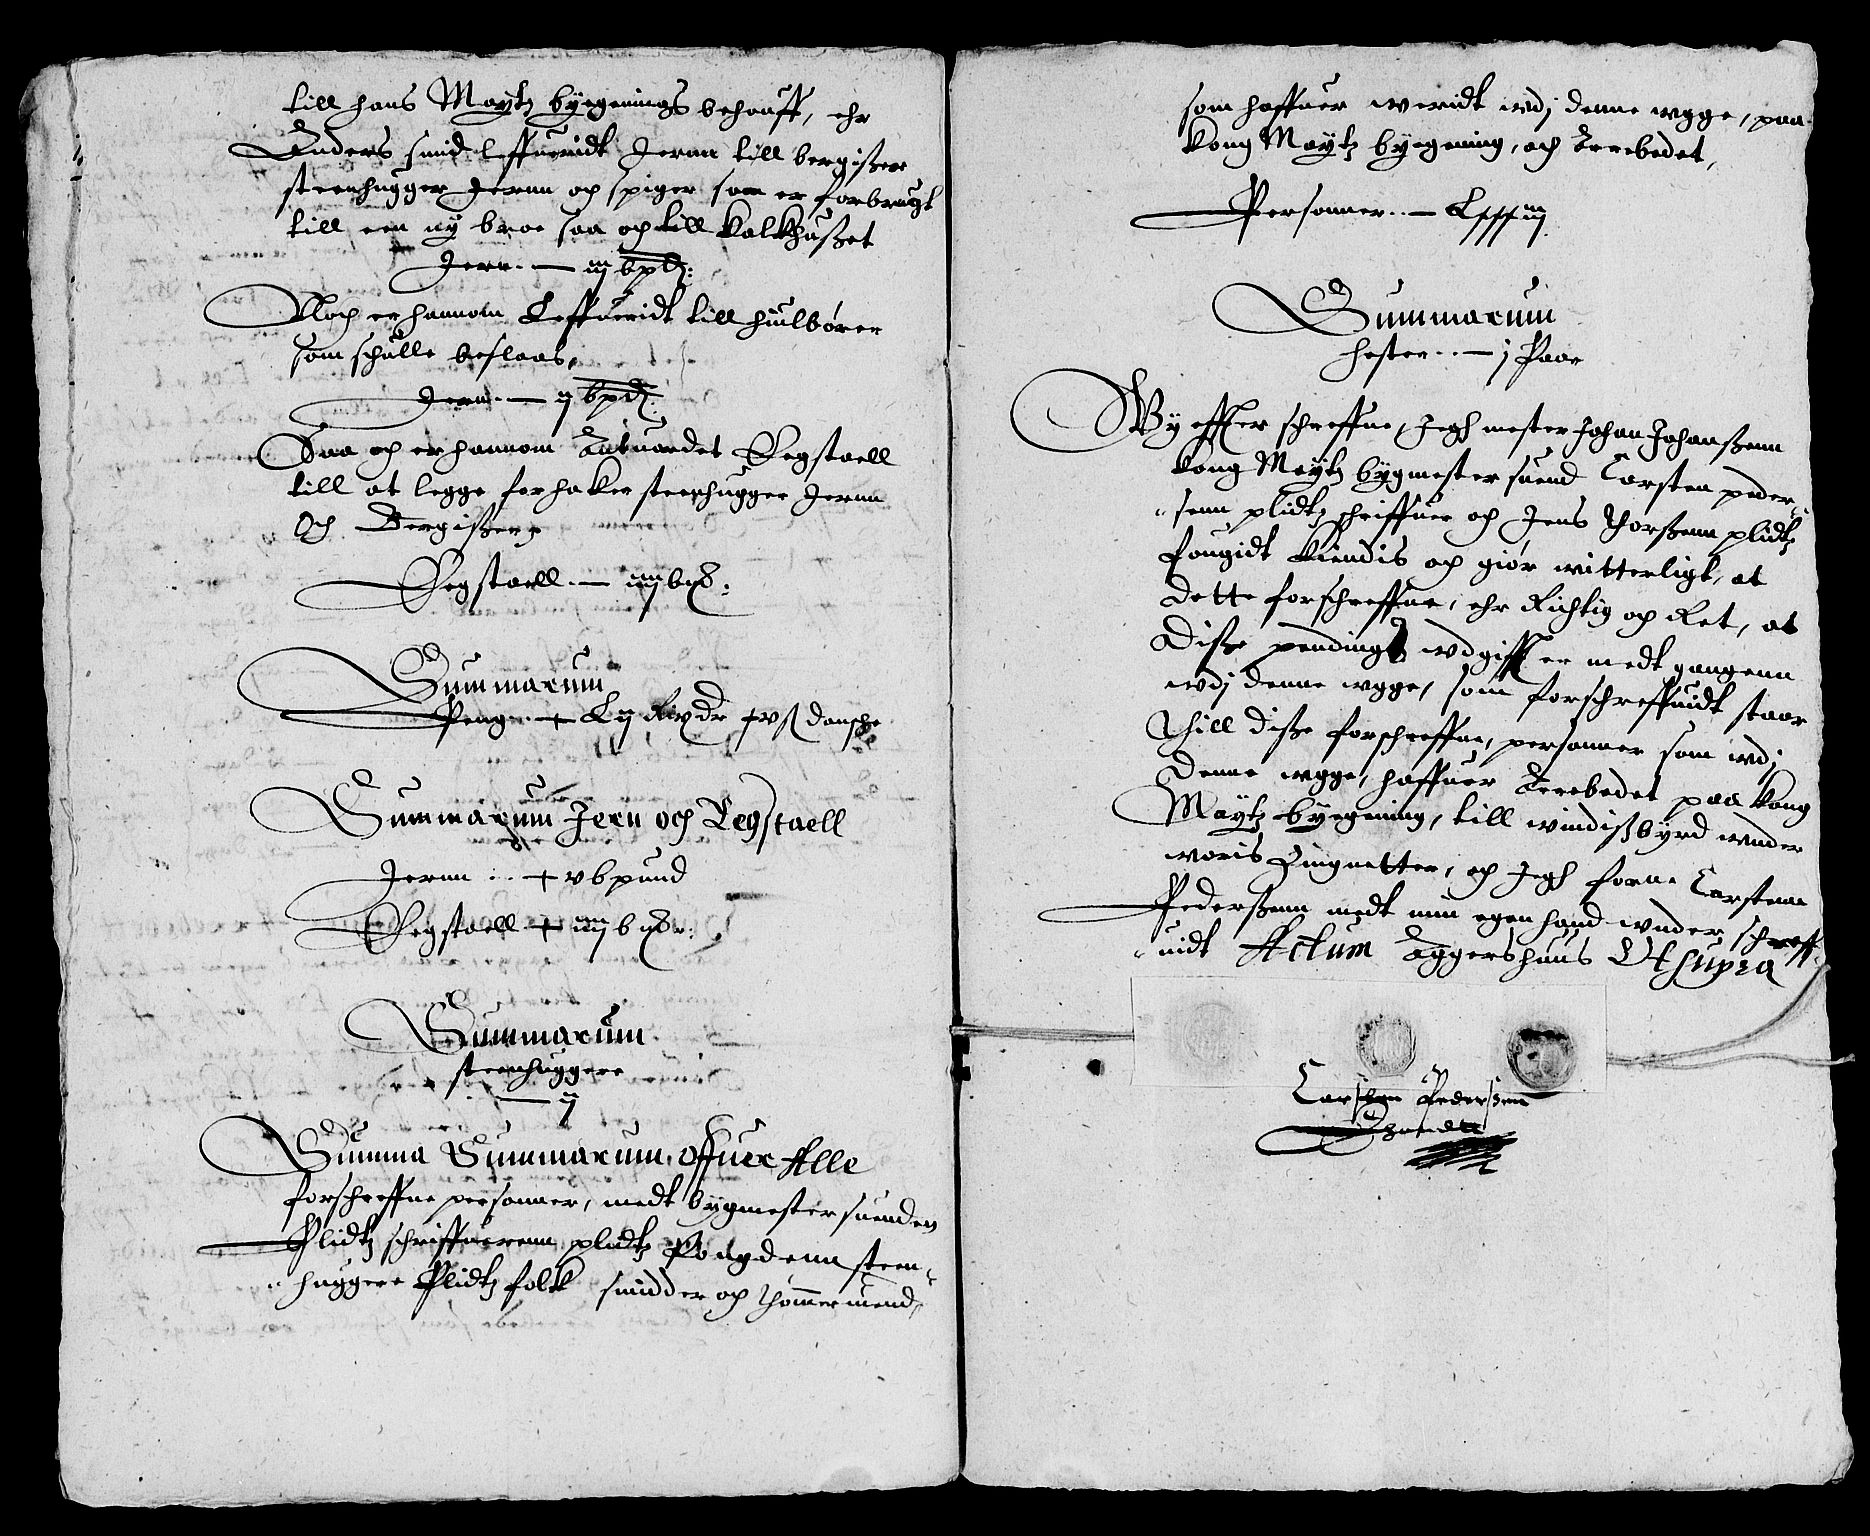 till hans Maytz byegenings behouff, ehr
Anders smid leffueridt Jernn till bergißer
steenhugger Jernn och spiger som er forbrugt
till een ny broe saa och till kalckhußet
Jern – iij bpd:
Noch er hannom Leffueridt till hiulbörer
som schulle beslaas,
Jern – ij bpd:
Saa och er hannom Antuordet Legstaell
till at legge for haker steenhugger Jernn
Och Bergißer,
Legstaell – iiij
Summarum
Peng – Lij Rixdr dansche
Summarum Jern och Legstaell
Jernn – v bpund
Legstaell – iiij
Summarum
steenhuggere
– ij
Summa Summarum offuer Alle
forschreffne personner, medt bygmester suenden
Plidtz schriffuerenn plidtz Fougdenn steen-
huggere Plidtz folk smidder och thömmermend,
som haffuer weridt wdj denne wgge, paa
kong Maytz byegening, och Arrebedet,
Personner – Lxxxiij
Summarum
hester – j Paar
Wy effter schreffne, Jegh mester Johan Johanßenn
kong Maytz bygmester suend Carsten peder-
senn plidtz schriffuer och Jens Thorßenn plidtz
fougidt kiendis och giör witterligt, at
dette forschreffne, ehr Richtig och Ret, at
diße pendinge wdgifft er medt gangenn
wdj denne wgge, som forschreffuidt staar
thill diße forschreffne, personner som wdj
denne wgge, haffuer Arrebedet paa kong
Maytz byegening, till windißbyrd wnder
woris Zingnetter, och Jegh forne Carstenn
Pederßenn medt min egen hand wnder schreff-
uidt Actum Aggershuus Ut supra
Carsten Pedersen
Ehandtt